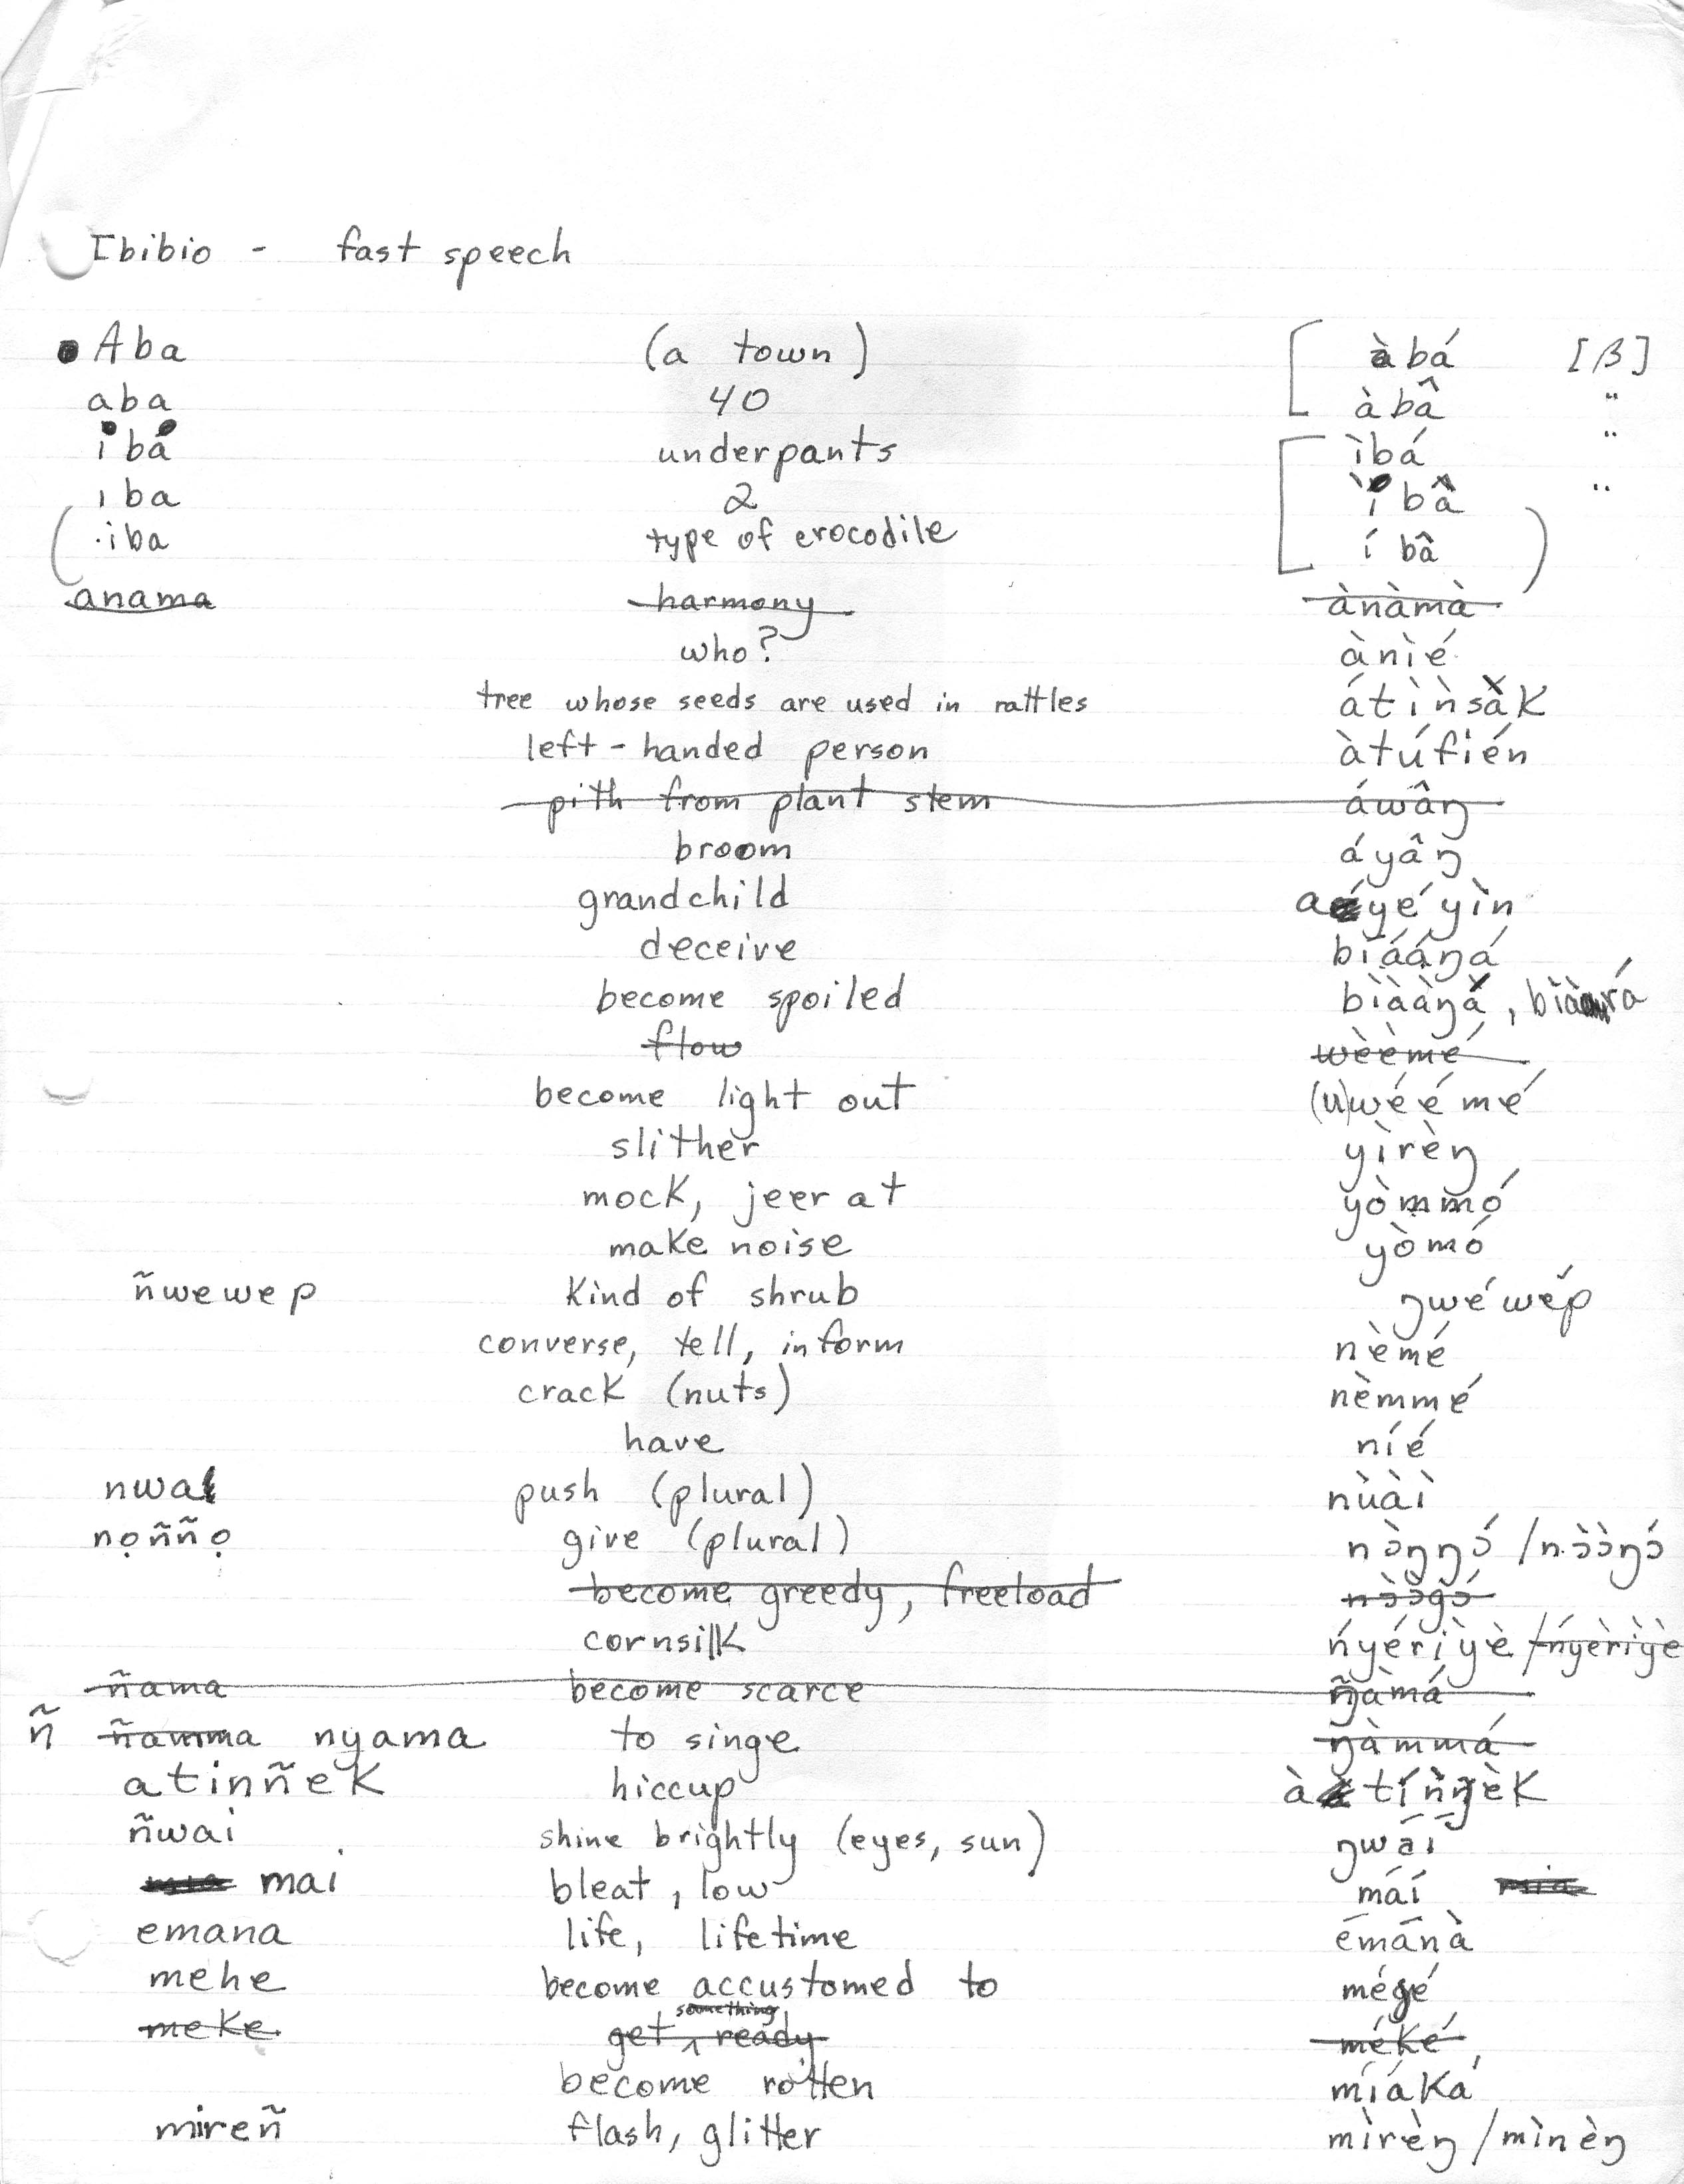 Ibibio - fast speech
Aba (a town) [ àbá [β]
aba 40 àbâ "
iba underpants [ ìbá "
iba 2 ìbâ "
(iba type of crocodile íbâ )
anama harmony ànàmà
who? ànìé
tree whose seeds are used in rattles átìǹsàk
left-handed person àtúfién
pith from plant stem áwâŋ
broom áyâŋ
grandchild ayéyìn
deceive bíááŋá
become spoiled bìààŋá,
flow wèèmé
become light out (u)wéémé
slither yìrèŋ
mock, jeer at yòmmó
make noise yòmó
ñwewep kind of shrub ŋwéwěp
converse, tell, inform nèmé
crack (nuts) nèmmé
have níé
nwai push (plural) nùàì
nọññọ give (plural) nɔ̀ŋŋɔ́ / nɔ̀ɔ̀ŋɔ́
become greedy, freeload nɔ̀ɔ̀gɔ́
cornsilk ńyérìyè / ńyèrìyè
ñama become scarce ŋàmá
ñ ñamma nyama to singe ŋàmmá
atinñek hiccup àtíǹŋèk
ñwai shine brightly (eyes, sun) ŋwáí
mia mai bleat, low máí mia
emana life, lifetime émánà
mehe become accustomed to mégé
meke get something ready méké
become rotten míáká
mireñ flash, glitter mìrèŋ / mìnèŋ